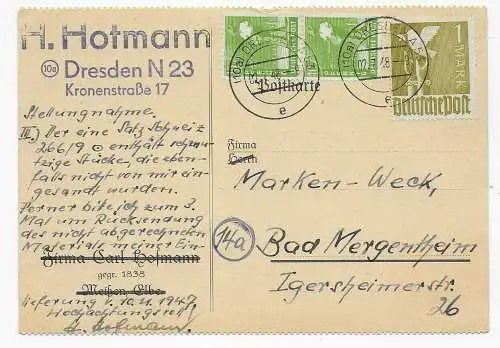 H. Hofmann
(10a) Dresden N 23
Kronenstraße 17
Stellungnahme.
II.) Der eine Satz Schweiz
266/9 ⊙ enthält schmut-
zige Stücke, die eben-
falls nicht von mir ein-
gesandt wurden.
Ferner bitte ich zum 3.
Mal um Rücksendung
des nicht abgerechneten
Materials meiner Ein-
Firma Carl Hofmann
gegr. 1838
Meißen, Elbe
lieferung v. 10.4.1947.
Hochachtungsvoll!
H. Hofmann
Postkarte
(10a) DRESDEN
e
e
1 MARK
Deutsche Post
Firma
Herrn
Marken-Weck,
14a
Bad Mergentheim
Igersheimerstr.
26